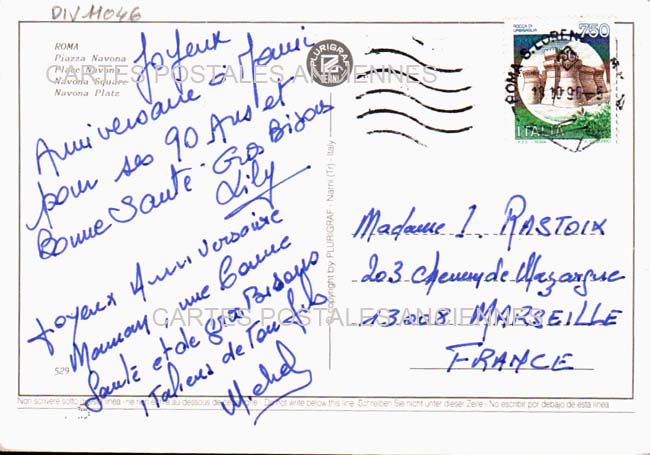 DIV 11046
ROMA
Piazza Navona
Place Navona
Navona Square
Navona Platz
Joyeux
Anniversaire à Mami
pour ses 90 Ans et
Bonne Santé. Gros Bisous
Lily
Joyeux Anniversaire
Maman, une bonne
Santé et de gros Bisous
Italiens de Ton fils
Michel
529
PLURIGRAF
TERNI
© copyright by PLURIGRAF - Narni (Tr) - Italy
ROMA S. LOREN
ROCCA DI URBISAGLIA
750
ITALIA
Madame I. RASTOIX
203 Chemin de Mazargue
13008 MARSEILLE
FRANCE
CARTES POSTALES ANCIENNES
CARTES POSTALES ANCIENNES
Non scrivere sotto questa linea - ne rien écrire au dessous de cette ligne - Do not write below this line. Schreiben Sie nicht unter dieser Zeile - No escribir por debajo de esta linea